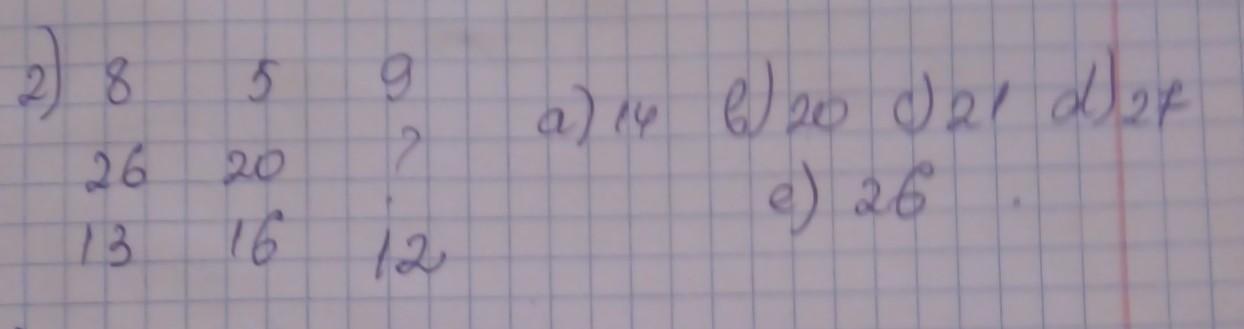 2) 8 5 9 a) 14 b) 20 c) 21 d) 27
26 20 ?
e) 26
13 16 12